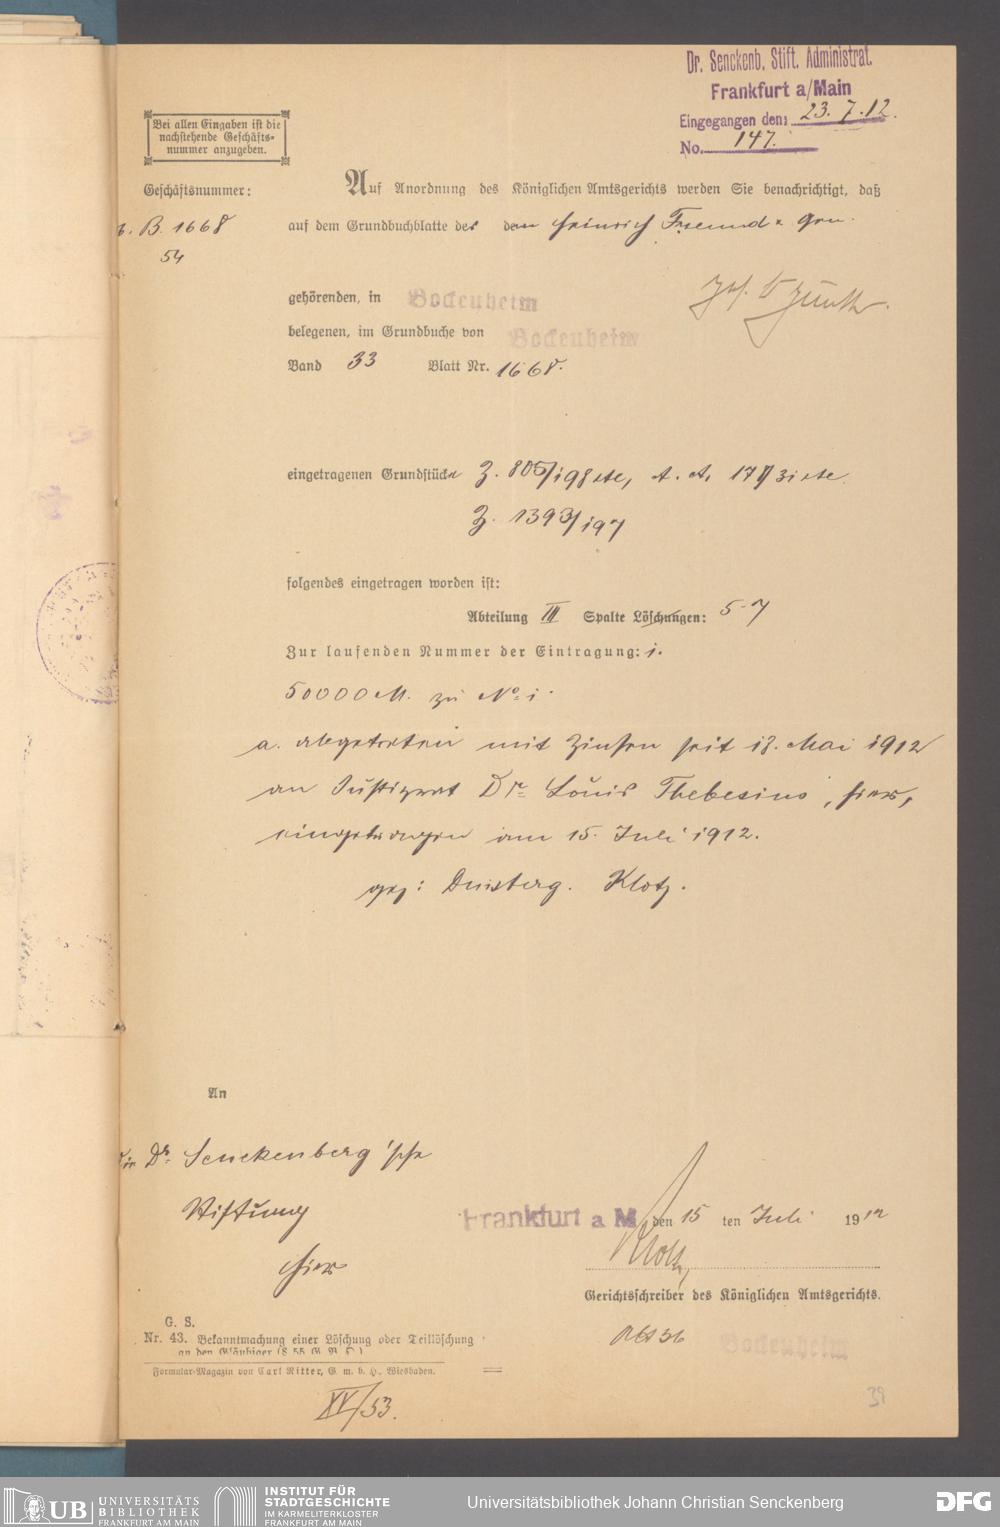 Dr. Senckenb. Stift. Administrat.
Frankfurt a/Main
Eingegangen den: 23. 7. 12.
No. 147.
Bei allen Eingaben ist die
nachstehende Geschäfts-
nummer anzugeben.
Geschäftsnummer:
B. 1668
54
Auf Anordnung des Königlichen Amtsgerichts werden Sie benachrichtigt, daß
auf dem Grundbuchblatte des dem Heinrich Freund u. Gen.
gehörenden, in Bockenheim
belegenen, im Grundbuche von Bockenheim
Band 33 Blatt Nr. 1668.
eingetragenen Grundstück Z. 805/198 etc, A. A. etc.
Z. 1393/197
folgendes eingetragen worden ist:
Abteilung III Spalte Löschungen: 5-7
Zur laufenden Nummer der Eintragung: 1.
50000 M. zu No. 1.
a. abgetreten mit Zinsen seit 18. Mai 1912
an Justizrat Dr. Louis Thebesius, hier,
eingetragen am 15. Juli 1912.
gez: Duisberg. Klotz.
An
die Dr. Senckenberg'sche
Stiftung
hier
Frankfurt a M, den 15 ten Juli 1912
Klotz
Gerichtsschreiber des Königlichen Amtsgerichts.
Abt 36 Bockenheim
G. S.
Nr. 43. Bekanntmachung einer Löschung oder Teillöschung
an den Gläubiger (§ 55 G. B. O.)
Formular-Magazin von Carl Ritter, G. m. b. H. Wiesbaden.
XV/53.
39
UB UNIVERSITÄTS
BIBLIOTHEK
FRANKFURT AM MAIN
INSTITUT FÜR
STADTGESCHICHTE
IM KARMELITERKLOSTER
FRANKFURT AM MAIN
Universitätsbibliothek Johann Christian Senckenberg
DFG